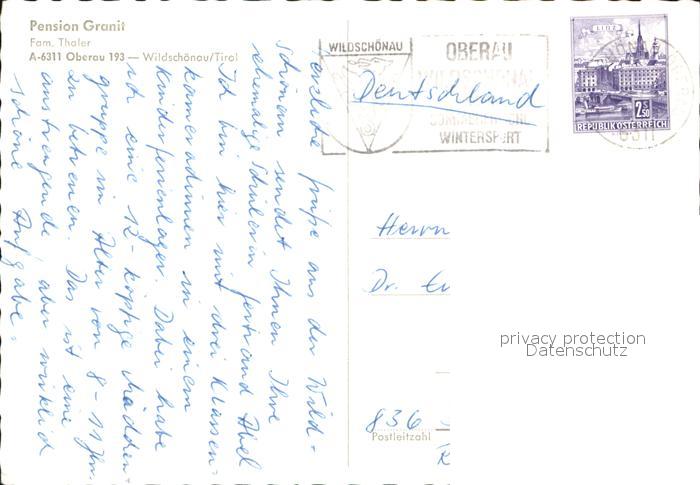 Pension Granit
Fam. Thaler
A-6311 Oberau 193 — Wildschönau/Tirol
Herzliche Grüße aus der Wild-
schönau sendet Ihnen Ihre
ehemalige Schülerin
Ich bin hier mit drei Klassen-
kameradinnen in einem
Kinderferienlager. Dabei habe
ich eine 12-köpfige Mädchen-
gruppe im Alter von 8-11 Jhr.
zu betreuen. Das ist eine
anstrengende, aber wirklich
schöne Aufgabe.
WILDSCHÖNAU
OBERAU
WILDSCHÖNAU
WINTERSPORT
Deutschland
LINZ
2.50
REPUBLIK ÖSTERREICH
6311
Herrn
Dr.
privacy protection
Datenschutz
836
Postleitzahl